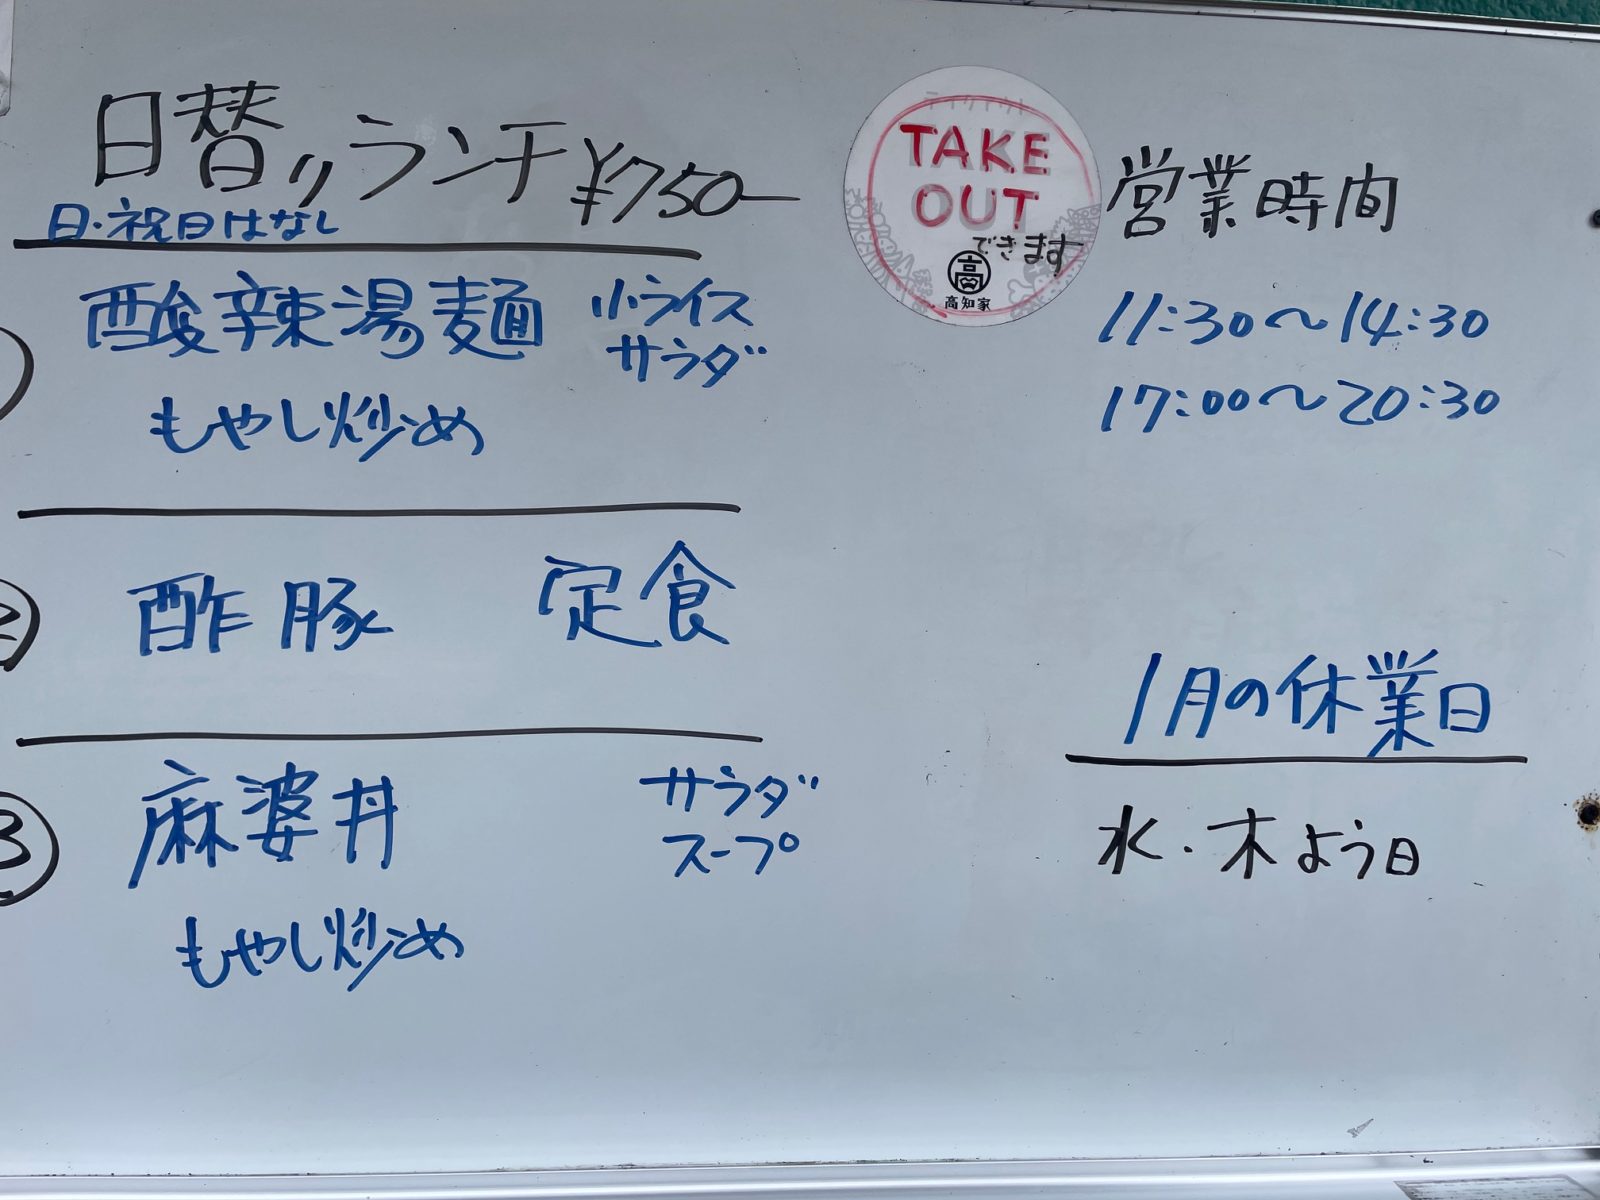 日替りランチ ¥750-
日・祝日はなし
酸辣湯麺 小ライス
サラダ
もやし炒め
酢豚 定食
3 麻婆丼 サラダ
スープ
もやし炒め
テイクアウト
TAKE
OUT
できます
高
高知家
営業時間
11:30〜14:30
17:00〜20:30
1月の休業日
水・木よう日